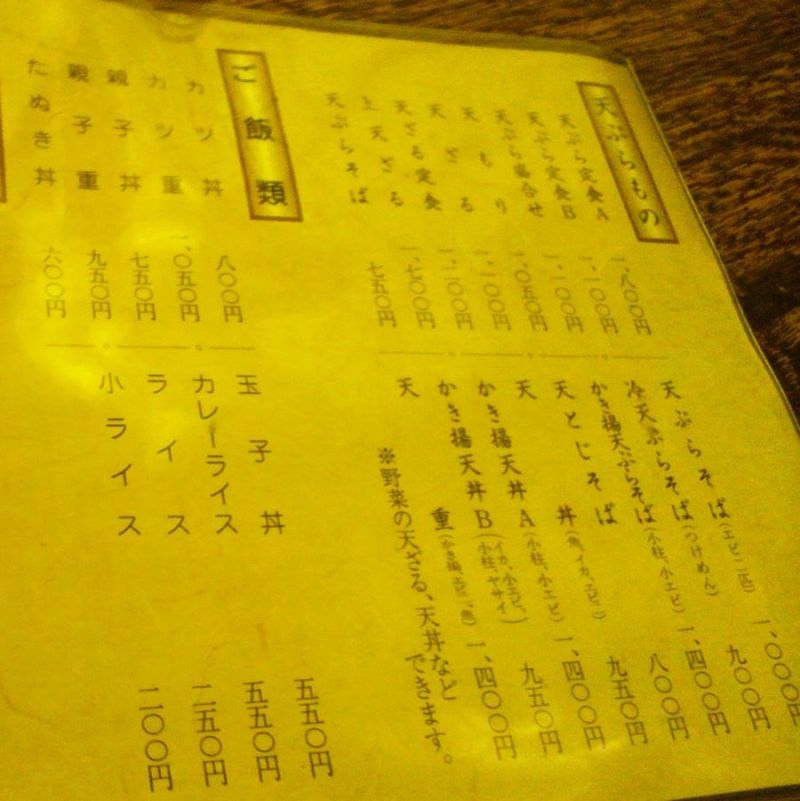 天ぷらもの
天ぷら定食A 一、八〇〇円
天ぷら定食B
天ぷら盛合せ
天もり 一、〇五〇円
天ざる
天ざる定食
上天ざる 一、七〇〇円
天ぷらそば 七五〇円
天ぷらそば(エビ二匹) 一、〇〇〇円
冷天ぷらそば(つけめん) 九〇〇円
かき揚天ぷらそば(小柱、小エビ) 一、四〇〇円
天とじそば 八〇〇円
天丼(魚、イカ、エビ二) 九五〇円
かき揚天丼A(小柱、小エビ) 一、四〇〇円
かき揚天丼B(イカ、小エビ、小柱、ヤサイ) 九五〇円
天重(かき揚、エビ二、魚) 一、四〇〇円
※野菜の天ざる、天丼など
できます。
ご飯類
カツ丼 八〇〇円
カツ重 一、〇五〇円
親子丼 七五〇円
親子重 九五〇円
たぬき丼 六〇〇円
玉子丼 五五〇円
カレーライス 五五〇円
ライス 二五〇円
小ライス 二〇〇円